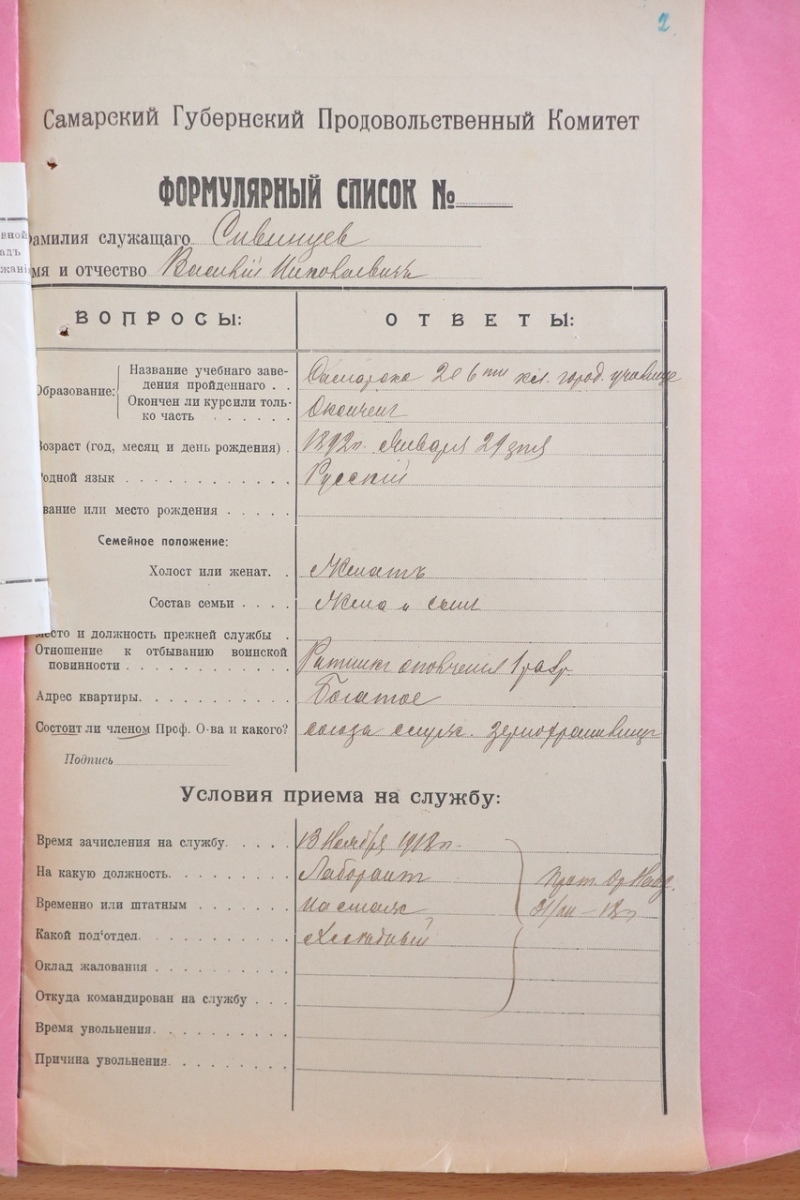 2
Самарский Губернский Продовольственный Комитет
ФОРМУЛЯРНЫЙ СПИСОК №
фамилия служащаго Сивинцев
мя и отчество Василий Николаевичъ
ВОПРОСЫ: ОТВЕТЫ:
Название учебнаго заве-
дения пройденнаго . . Самарское 2е 6ти кл. город. училище
Образование:
Окончен ли курс или толь-
ко часть . . . . . . Окончил
Возраст (год, месяц и день рождения) . 1892 г. Января 29 дня
одной язык . . . . . . . . . . . . Русский
вание или место рождения . . . . .
Семейное положение:
Холост или женат. . Женатъ
Состав семьи . . . . Жена и сын
место и должность прежней службы .
Отношение к отбыванию воинской
повинности . . . . . . . . . . . . Ратник ополчения 1 разр.
Адрес квартиры. . . . . . . . . . . Богатое
Состоит ли членом Проф. О-ва и какого? союза служ.
Подпись
Условия приема на службу:
Время зачисления на службу. . . . . 13 Ноября 1918 г.
На какую должность. . . . . . . . . Лаборант
Временно или штатным . . . . . . .
31/XII–18 г.
Какой под‘отдел. . . . . . . . . . . Хлебный
Оклад жалования . . . . . . . . . .
Откуда командирован на службу . . .
Время увольнения. . . . . . . . . .
Причина увольнения. . . . . . . . .